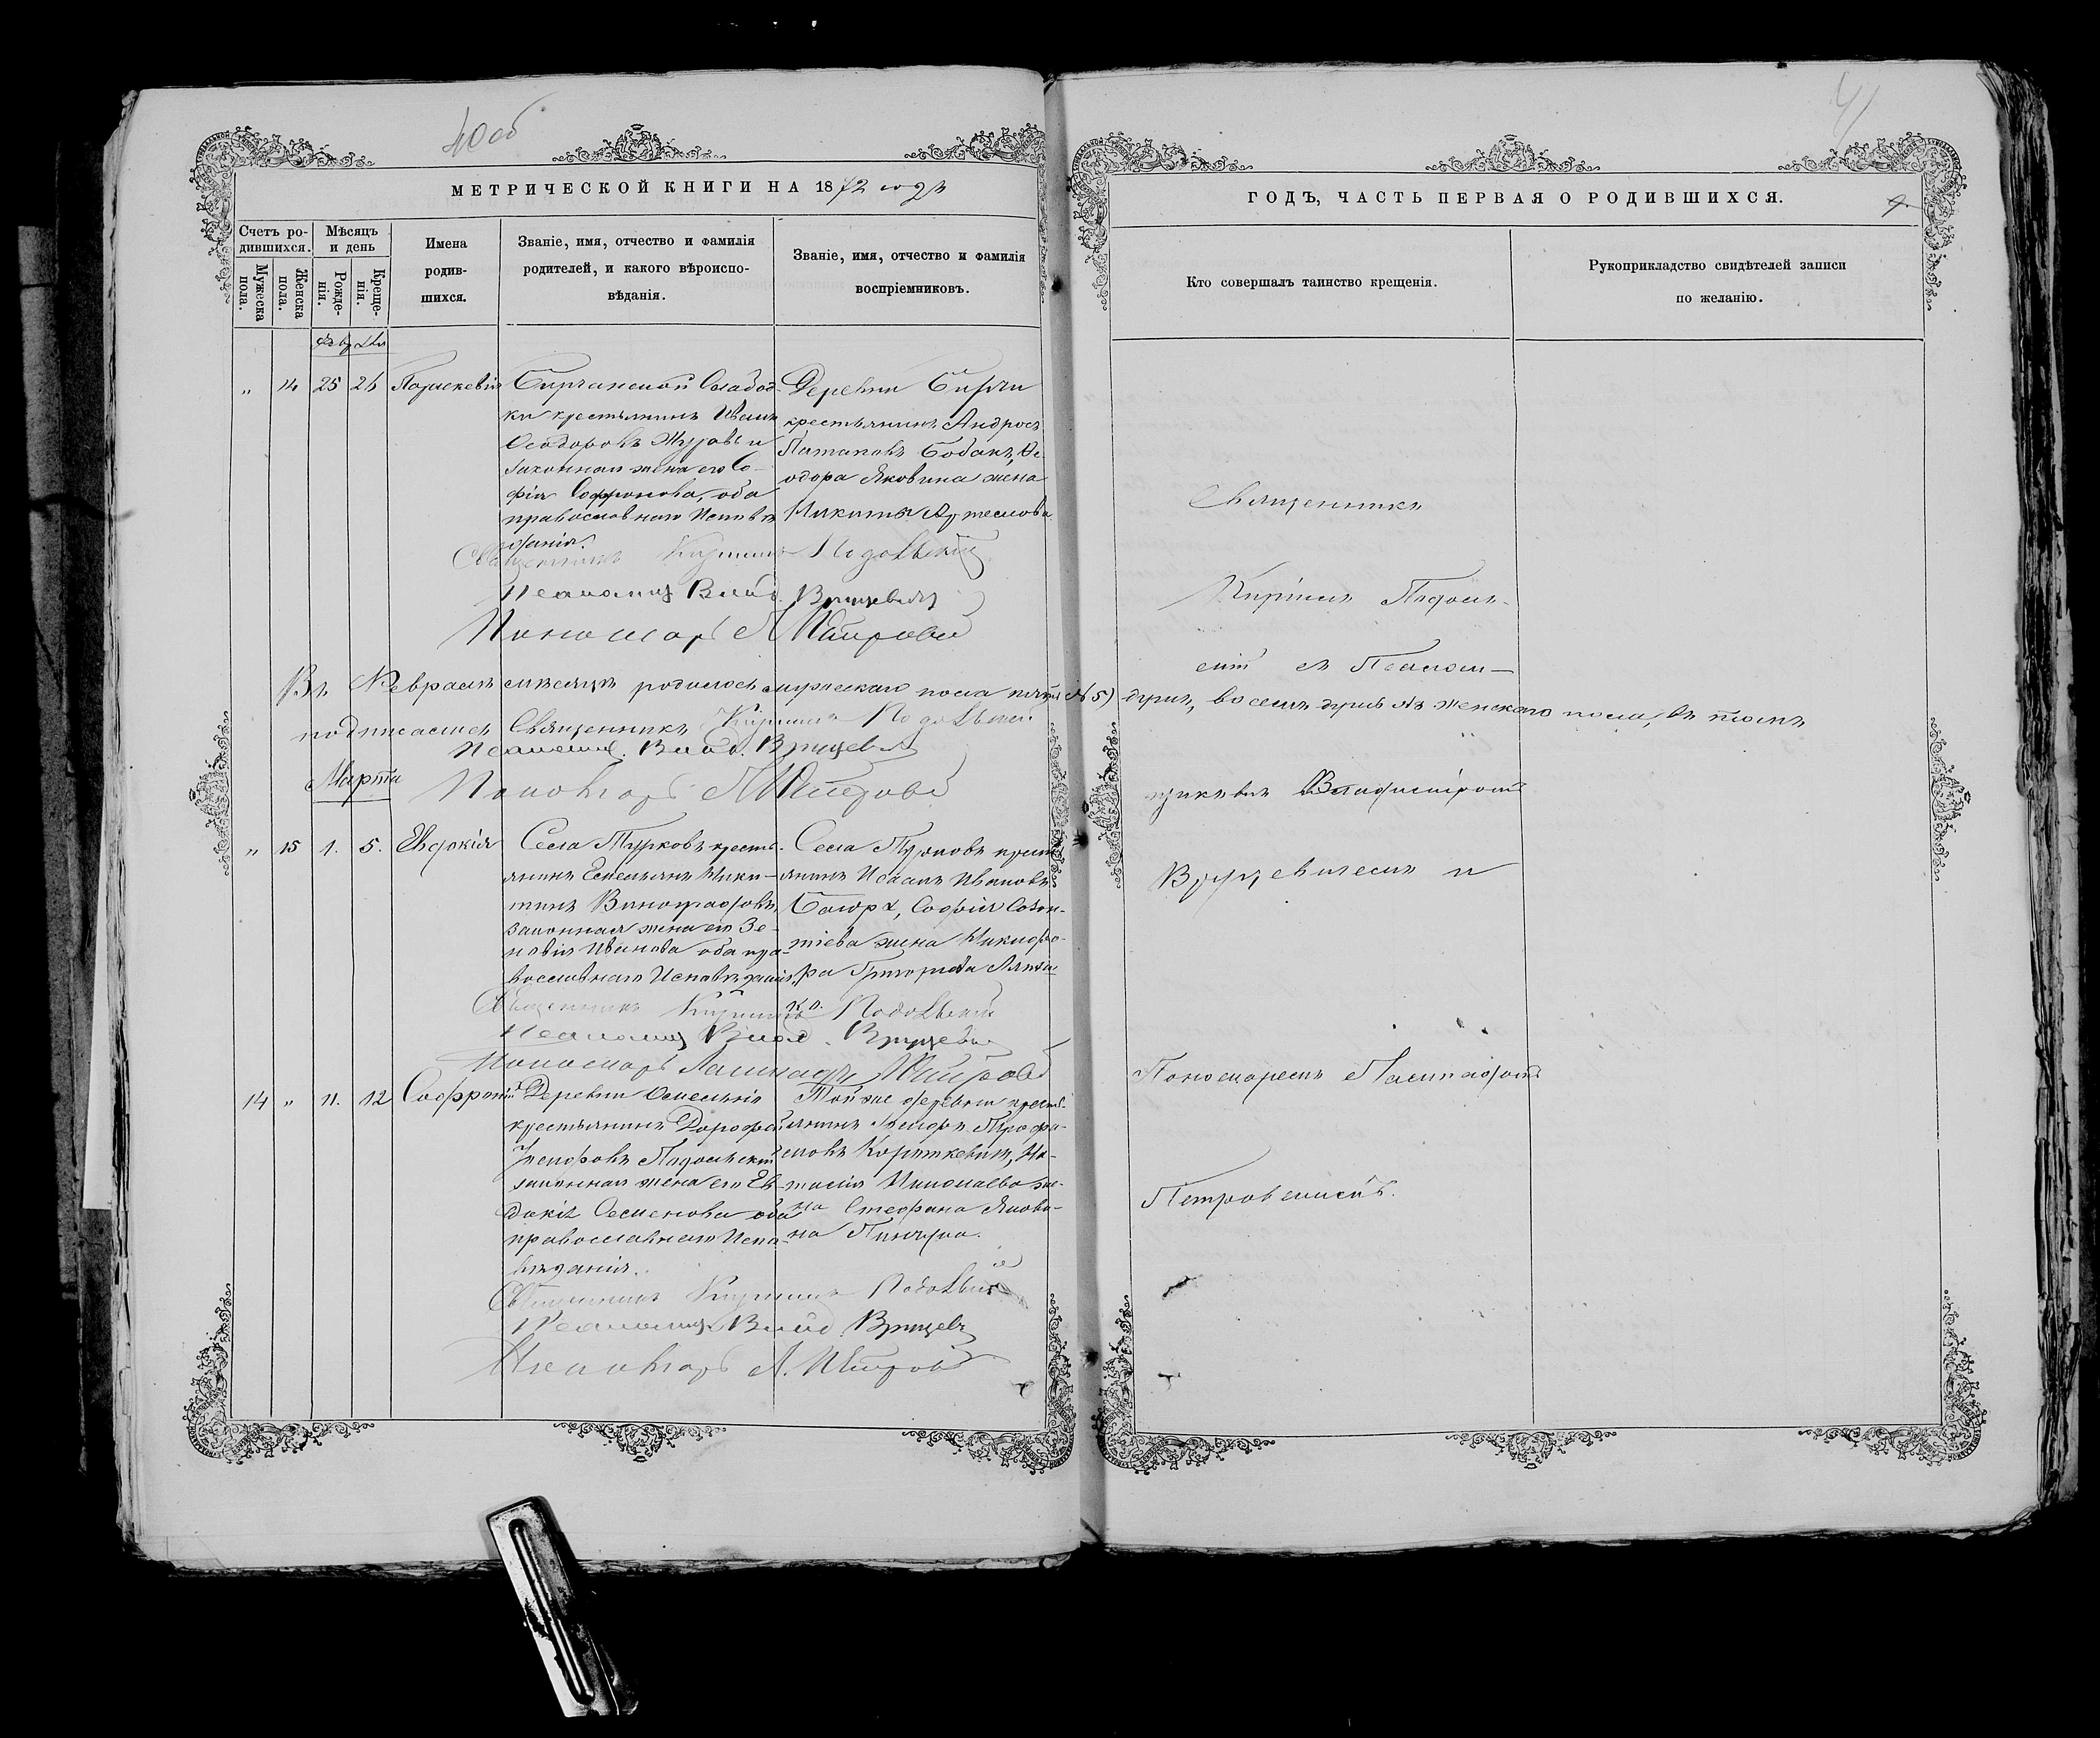 40 об
41
МЕТРИЧЕСКОЙ КНИГИ НА 1872 годъ
ГОДЪ, ЧАСТЬ ПЕРВАЯ О РОДИВШИХСЯ.
Счетъ ро-
дившихся.
Мужеска
пола.
Женска
пола.
Мѣсяцъ
и день
Рожде-
нія.
Креще-
нія.
Имена
родив-
шихся.
Званіе, имя, отчество и фамилія
родителей, и какого вѣроиспо-
вѣданія.
Званіе, имя, отчество и фамилія
воспріемниковъ.
Кто совершалъ таинство крещенія.
Рукоприкладство свидѣтелей записи
по желанію.
„ 14 25 26 Параскевія
Бирчанской Слабод-
ки крестьянинъ Иванъ
Ѳеодоровъ Журавь и
законная жена его Со-
фія Софронова, оба
православнаго Исповѣ-
данія.
Деревни Бирчи
крестьянинъ Андрей
Потаповъ Бобакъ, Ѳе-
одора Яковина жена
Никиты
Священникъ Кириллъ Подольскій
Псаломщ Влад. Врицевъ
Пономарь Л Петровъ
Въ Февралѣ мѣсяцѣ родилось мужескаго пола пять (№ 5) душъ, восемь душъ женскаго пола, въ томъ
подписались Священникъ Кириллъ Подольскій
Псаломщ. Влад. Врицевъ
Пономарь Л Петровъ
Марта
„ 15 1. 5. Евдокія
Села Турковъ кресть-
янинъ Емельянъ Ники-
тинъ Виноградовъ,
законная жена его Зе-
новія Иванова оба пра-
вославнаго Исповѣданія.
Села Турковъ крест
янинъ Исаакъ Ивановъ
Софія Созон-
тіева жена Никифо-
ра Григорьева
Священникъ Кириллъ Подольскій
Псаломщ Влад. Врицевъ
Пономарь Лампадъ Петровъ
14 „ 11. 12 Софроній
Деревни Омельнія
крестьянинъ Дорофей
Подольскій
законная жена его Ев-
докія Семенова оба
православнаго Испо-
вѣданія.
Той же деревни крест-
янинъ Трофи-
мовъ Короткевичъ, На-
талія Николаева же-
на Стефана Якови-
на
Священникъ Кириллъ Подольскій
Псаломщ Влад Врицевъ
Пономарь Л. Петровъ
Священникъ
Кириллъ Подоль-
скій съ Псалом-
щикомъ Владиміромъ
Врицевичемъ и
Пономаремъ Лампадомъ
Петровскимъ.